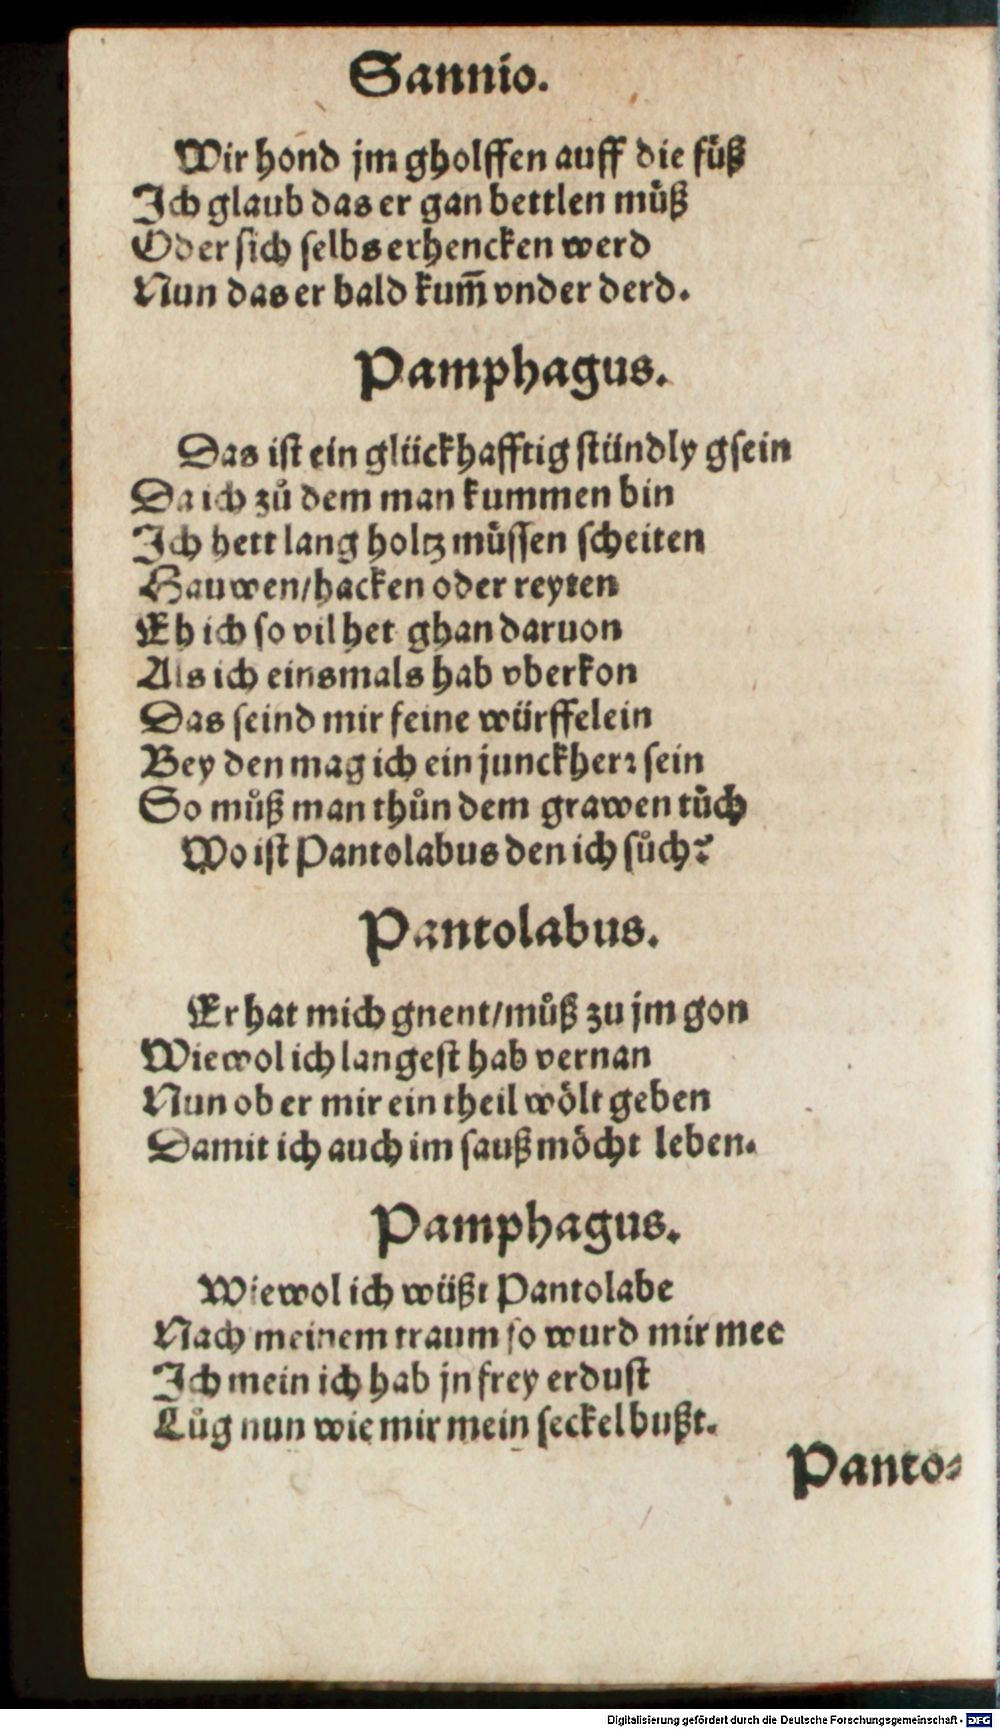 Sannio.
Wir hond jm gholffen auff die fuͤß
Ich glaub das er gan bettlen muͤß
Oder sich selbs erhencken werd
Nun das er bald kum̄ vnder derd.
Pamphagus.
Das ist ein glückhafftig stündly gsein
Da ich zuͦ dem man kummen bin
Ich hett lang holtz muͤssen scheiten
Hauwen/hacken oder reyten
Eh ich so vil het ghan daruon
Als ich einsmals hab vberkon
Das seind mir feine würffelein
Bey den mag ich ein junckherr sein
So muͦß man thuͦn dem grawen tuͦch
Wo ist Pantolabus den ich suͦch?
Pantolabus.
Er hat mich gnent/muͦß zu jm gon
Wiewol ich langest hab vernan
Nun ob er mir ein theil woͤlt geben
Damit ich auch im sauß moͤcht leben.
Pamphagus.
Wiewol ich wüßt Pantolabe
Nach meinem traum so wurd mir mee
Ich mein ich hab jn frey erdust
Luͦg nun wie mir mein seckel bußt.
Panto⸗
Digitalisierung gefördert durch die Deutsche Forschungsgemeinschaft - DFG